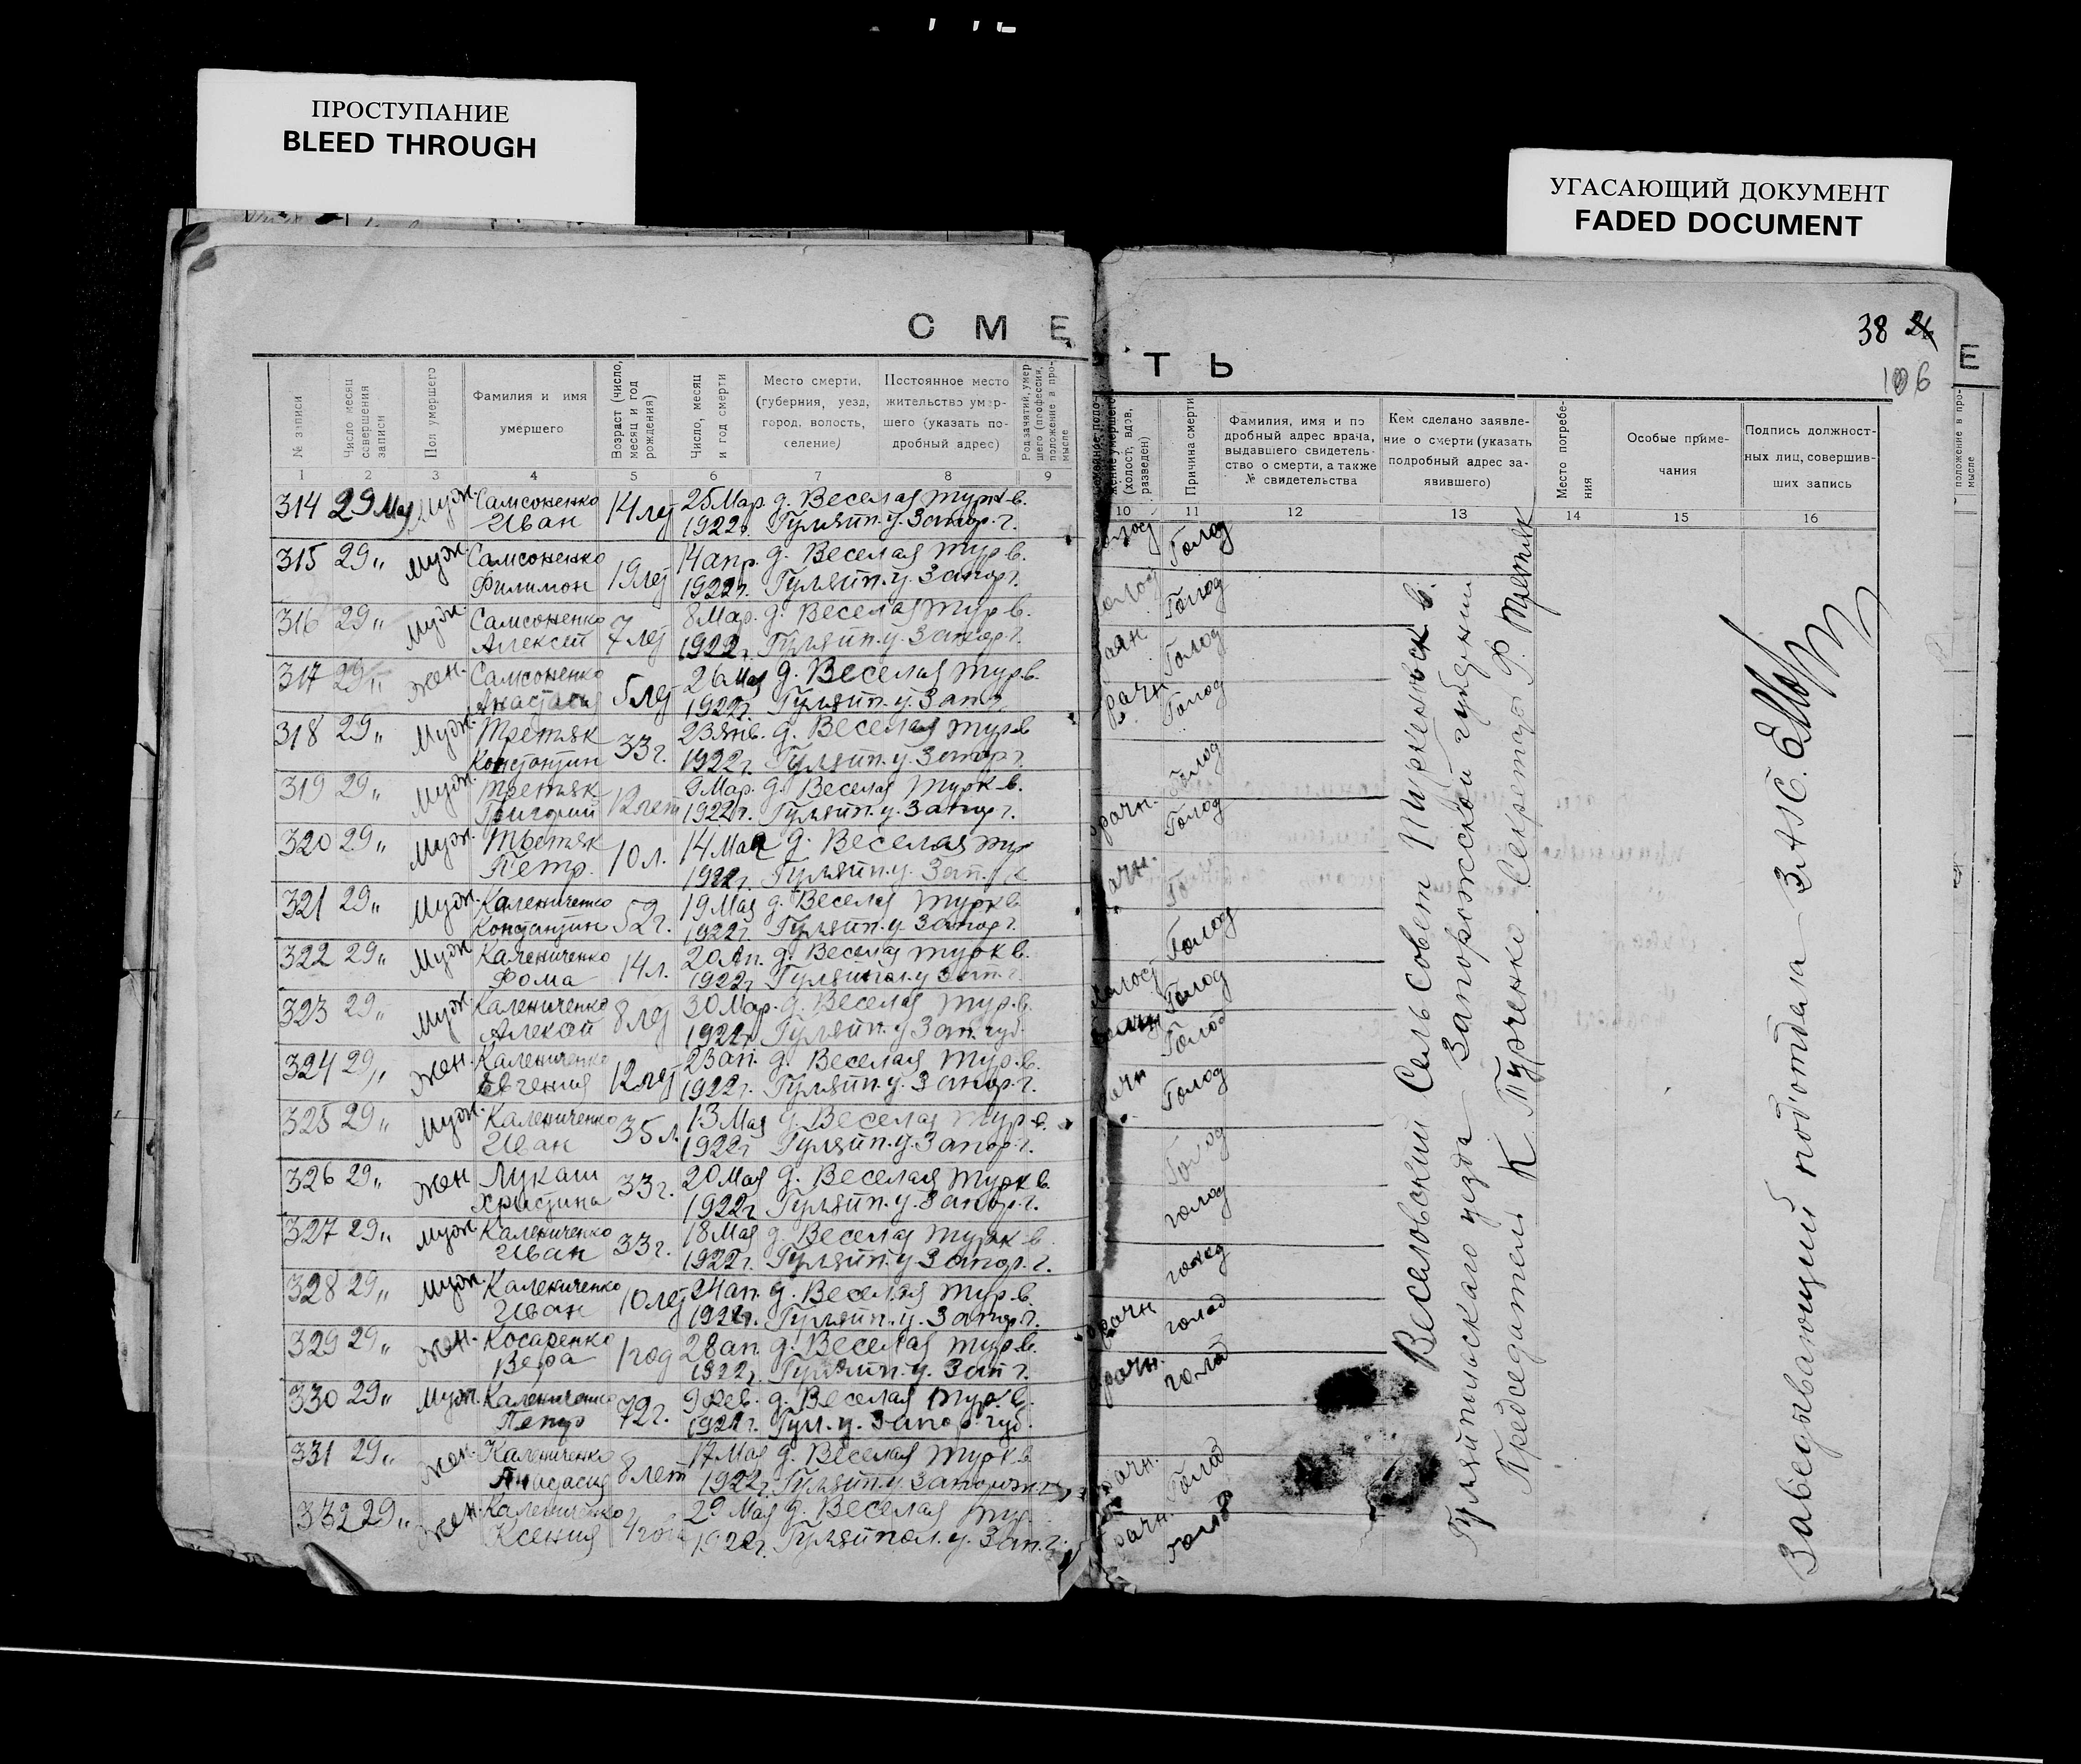 ПРОСТУПАНИЕ
BLEED THROUGH
УГАСАЮЩИЙ ДОКУМЕНТ
FADED DOCUMENT
С М Е
Т Ь
38
106
Е
№ записи
Число месяц совершения записи
Пол умершего
Фамилия и имя умершего
Возраст (число, месяц и год рождения)
Число, месяц и год смерти
Место смерти, (губерния, уезд, город, волость, селение)
Постоянное место жительство умершего (указать подробный адрес)
Род занятий, умершего (профессия, положение в промысле
1 2 3 4 5 6 7 8 9
314 29 Мая Муж. Самсоненко 14 лет 25 Мар. д. Веселая Турк в.
Иван 1922г. Гуляйп. у. Запор. г.
315 29 " Муж Самсоненко 19 лет 14 апр. д. Веселая Тур в.
Филимон 1922г. Гуляйп. у. Запор г.
316 29 " Муж. Самсоненко 7 лет 8 Мар. д. Веселая Тур в.
Алексей 1922г. Гуляйп. у. Запор. г.
317 29 " Жен. Самсоненко 5 лет 26 Мая д. Веселая Тур в.
Анастасия 1922г. Гуляйп. у. Запо
318 29 " Муж. Третяк 33 г. 23 Янв. д. Веселая Тур в
Констонтин 1922г. Гуляйп. у. Запор. г.
319 29 " Муж. Третяк 12 лет 9 Мар. д. Веселая Турк в.
Григорий 1922г. Гуляйп. у. Запор г.
320 29 " Муж. Третяк 10 л. 14 Мая д. Веселая Тур
Петр. 1922г. Гуляйп. у. Зап.
321 29 " Муж. Калениченко 52 г. 19 Мая д. Веселая Турк в
Констонтин 1922г Гуляйп. у. Запор г.
322 29 " Муж Калениченко 14 л. 20 Ап. д. Веселая Турк в.
Фома 1922г Гуляйпол. у Зап. г
323 29 " Муж Калениченко 8 лет 30 Мар. д. Веселая Тур. в.
Алексей 1922г Гуляйп. у Зап. губ.
324 29 " Жен. Калениченко 12 лет 23 ап. д. Веселая Тур. в.
Евгения 1922г. Гуляйп. у. Запор. г.
325 29 " Муж. Калениченко 35 л. 13 Мая д. Веселая Тур в.
Иван 1922г Гуляйп. у. Запор. г.
326 29 " Жен Лукаш 33 г. 20 Мая д. Веселая Турк в.
Христина 1922г Гуляйп. у. Запор. г.
327 29 " Муж. Калениченко 33 г. 18 Мая д. Веселая Турк в
Иван 1922г. Гуляйп. у Запор. г.
328 29 " Муж. Калениченко 10 лет 24 ап. д. Веселая Тур. в.
Иван 1922г. Гуляйп. у. Запор. г.
329 29 " Жен. Косаренко 1 год 28 ап. д. Веселая Тур. в.
Вера 1922г. Гуляйп. у. Зап г.
330 29 " Муж. Калениченко 72 г. 9 Фев. д. Веселая Тур. в.
Петр 1922г. Гул. у. Запор. губ.
331 29 " Жен. Калениченко 8 лет 17 Мая д. Веселая Турк в
1922г. Гуляйп. у.
332 29 " Жен. Калениченко 29 Мая д. Веселая Тур.
Ксения 1922г. Гуляйпол. у. Зап. г.
(холост, вдов, разведен)
Причина смерти
Фамилия, имя и подробный адрес врача, выдавшего свидетельство о смерти, а также № свидетельства
Кем сделано заявление о смерти (указать подробный адрес заявившего)
Место погребения
Особые примечания
Подпись должностных лиц, совершивших запись
положение в промысле
10 11 12 13 14 15 16
Голод
Голод
Голод
Голод
Голод
Голод
Го
Голод
Голод
Голод
Голод
Голод
голод
голод
голод
голод
Голод
голод
Веселовский Сель Совет Туркеновск в.
Гуляйпольского уезда Запорожской губернии
Председатель К Гурченко Секретарь Ф. Третяк
Заведывающий под'отдела ЗАГС.